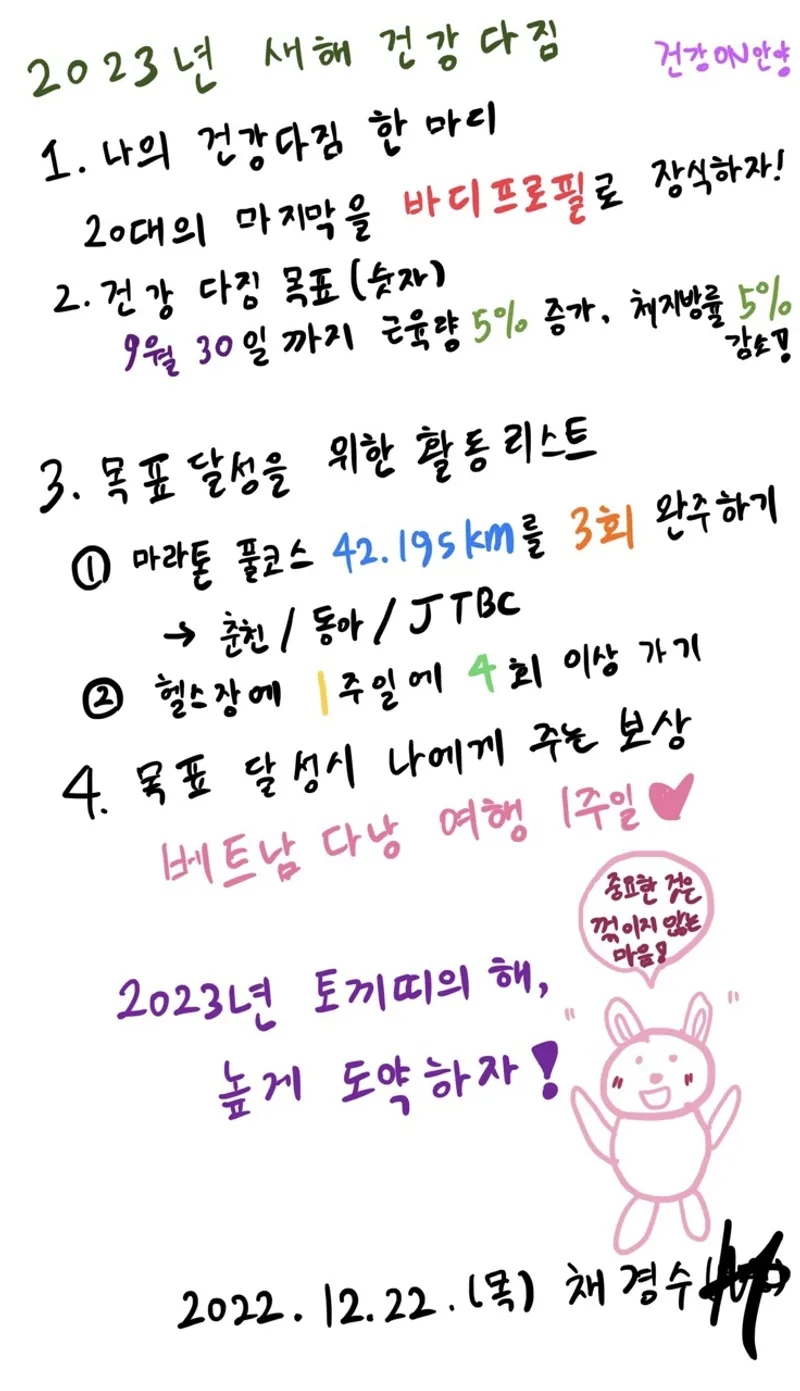 2023년 새해 건강 다짐
건강ON안양
1. 나의 건강다짐 한 마디
20대의 마지막을 바디프로필로 장식하자!
2. 건강 다짐 목표(숫자)
9월 30일 까지 근육량 5% 증가, 체지방률 5%
감소!
3. 목표 달성을 위한 활동 리스트
① 마라톤 풀코스 42.195km를 3회 완주하기
→ 춘천/동아/JTBC
② 헬스장에 1주일에 4회 이상 가기
4. 목표 달성시 나에게 주는 보상
베트남 다낭 여행 1주일♥
중요한 것은
꺾이지 않는
마음!
2023년 토끼띠의 해,
높게 도약하자!
2022.12.22.(목) 채경수